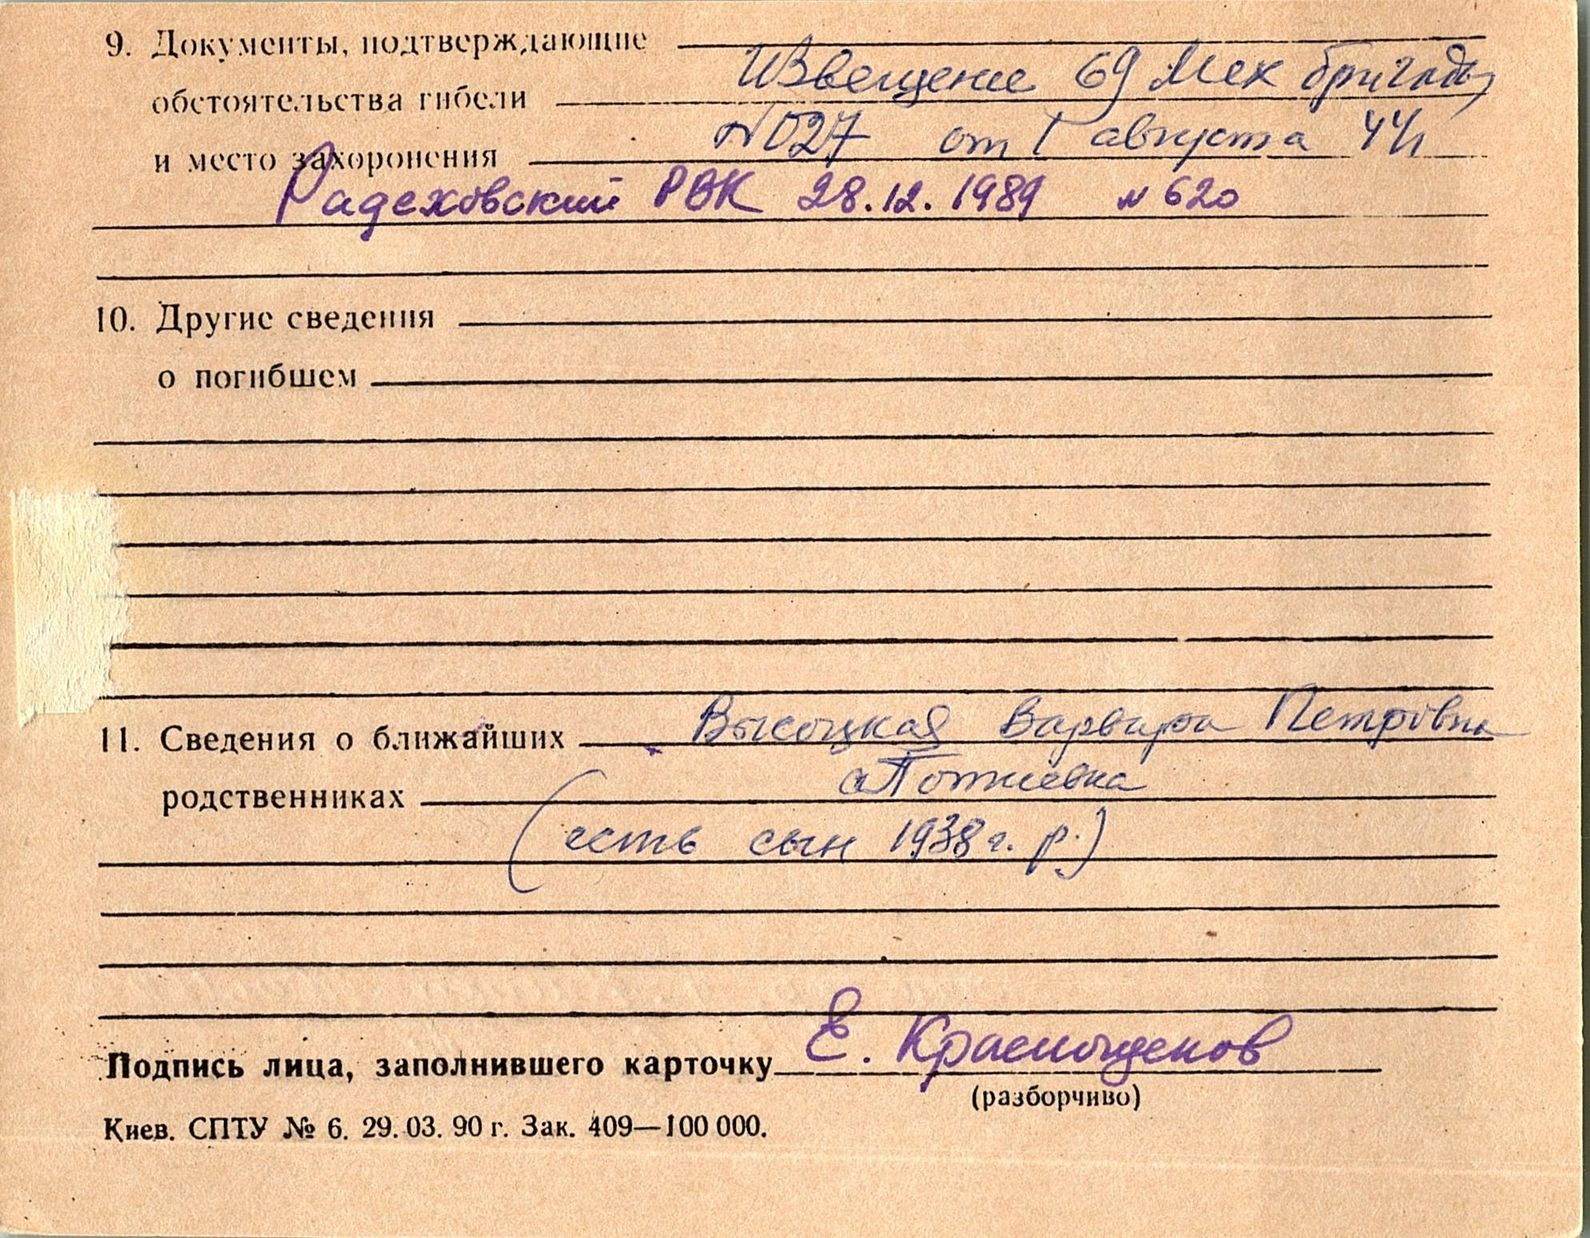 9. Документы, подтверждающие
Извещение 69 Мех бригады
обстоятельства гибели
№ 027 от 1 августа 44г
и место захоронения
Радеховский РВК 28.12.1989 № 620
10. Другие сведения
о погибшем
11. Сведения о ближайших Высоцкая Варвара Петровна
родственниках
(есть сын 1938 г. р.)
Подпись лица, заполнившего карточку Е. Краснощеков
(разборчиво)
Киев. СПТУ № 6. 29.03.90 г. Зак. 409—100 000.